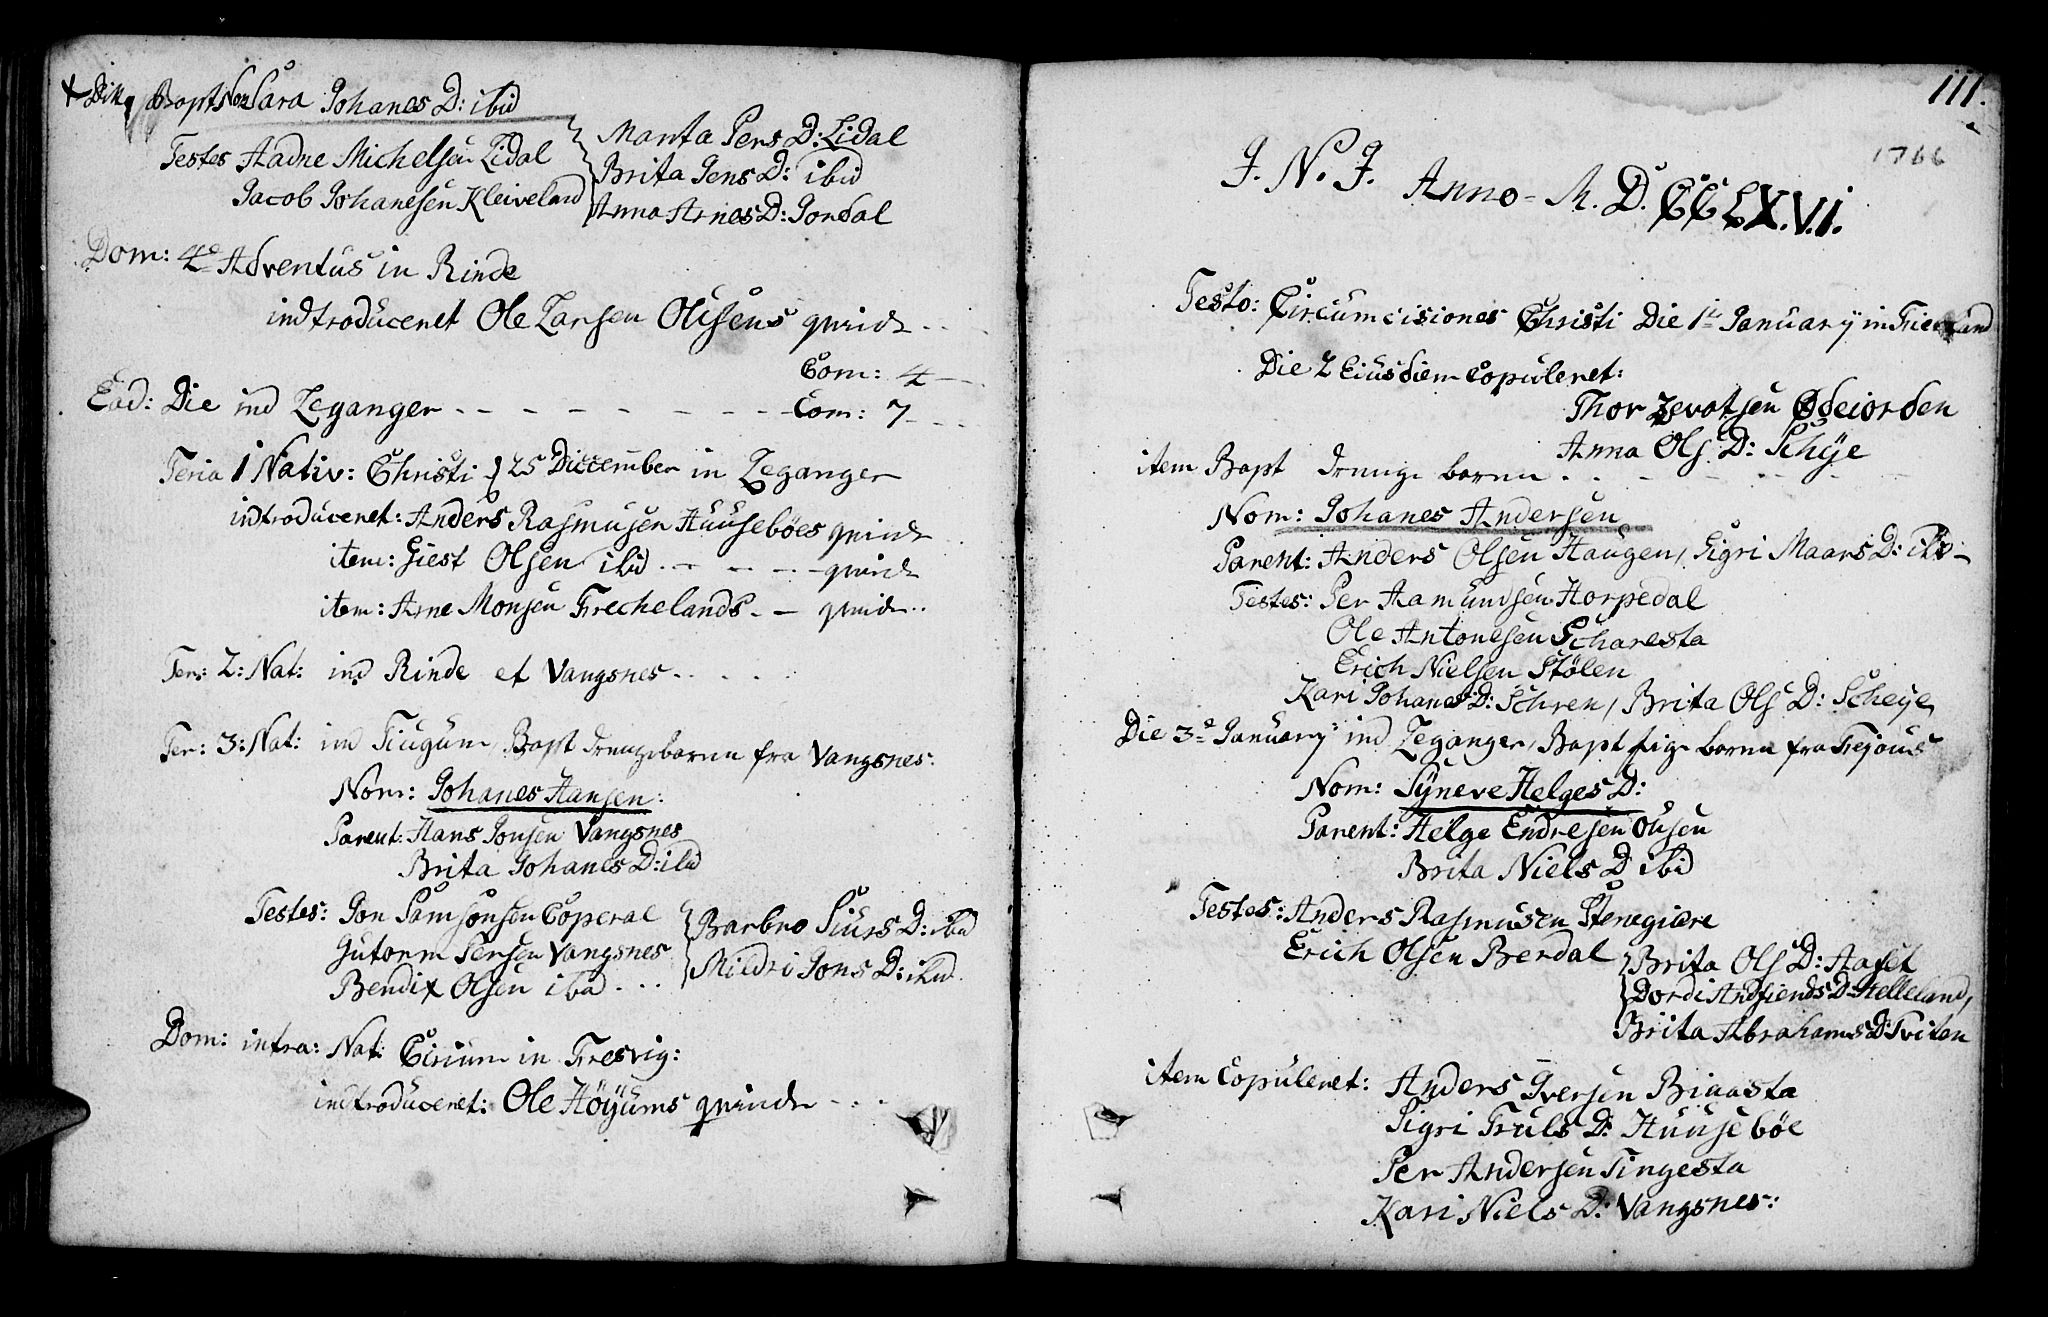 Bapt Nom Sara Johanes D: ibid
Testes Aadne Michelsen Lidal
Jacob Johanesen Kleiveland
Marita Pers D: Lidal
Brita Jens D: ibid
Anna Arnes D: Jordal
Dom: 4te Adventus in Rinde
indtroduceret Ole Larsen Olisens qvinde
Com: 4
Ead: Die ind Leganger - - - - - - - Com: 7
Feria 1 Nativ: Christi 25 Diccember in Leganger
indtroduceret: Anders Rasmusen Huusebøes qvinde
item: Giest Olsen ibid - - - qvinde
item: Arne Monsen Frechelands - - qvinde
Fer: 2: Nat: ind Rinde et Vangsnes
Fer: 3: Nat: ind Fiugum, Bapt drengebarnn fra Vangsnes:
Nom: Johanes Hansen:
Parent: Hans Jonsen Vangsnes
Brita Johanes D: ibid
Testes: Jon Samsonsen Coperal
Gutorm Persen Vangsnes
Bendix Olsen ibid
Barbro Siurs D: ibid
Mildri Jons D: ibid
Dom: intra: Nat: Cirium in Fresvig:
indtroduceret: Ole Höÿums qvinde
111.
1766
J. N. J. Anno - M. D. CCLX.V.I.
Festo: Circumcisiones Christi Die 1te Januarÿ in Fierland
Die 2 Eiusdiem Copuleret:
Thor Sevatsen Ødeiorden
Anna Ols D: Schÿe
item Bapt drenge barnn
Nom: Johanes Andersen
Parent: Anders Olsen Haugen, Sigri Maars D: ibid
Testes: Per Aamundsen Horpedal
Ole Antonesen Scharesta
Erich Nielsen Stölen
Kari Johanes D: Schren, Brita Ols D: Scheÿe
Die 3te Januarÿ ind Leganger, Bapt pige barnn fra
Nom: Sÿneve Helges D:
Parent: Helge Endresen Olisen
Brita Niels D ibid
Testes: Anders Rasmusen Stenegiære
Erich Olsen Berdal
Brita Ols D: Aafet
Dordi Andfiends D: Stelleland,
Brita Abrahams D: Tviten
item Copuleret: Anders Iversen Binasta
Sigri Truls D: Huusebøe
Per Andersen Tingesta
Kari Niels D: Vangsnes: